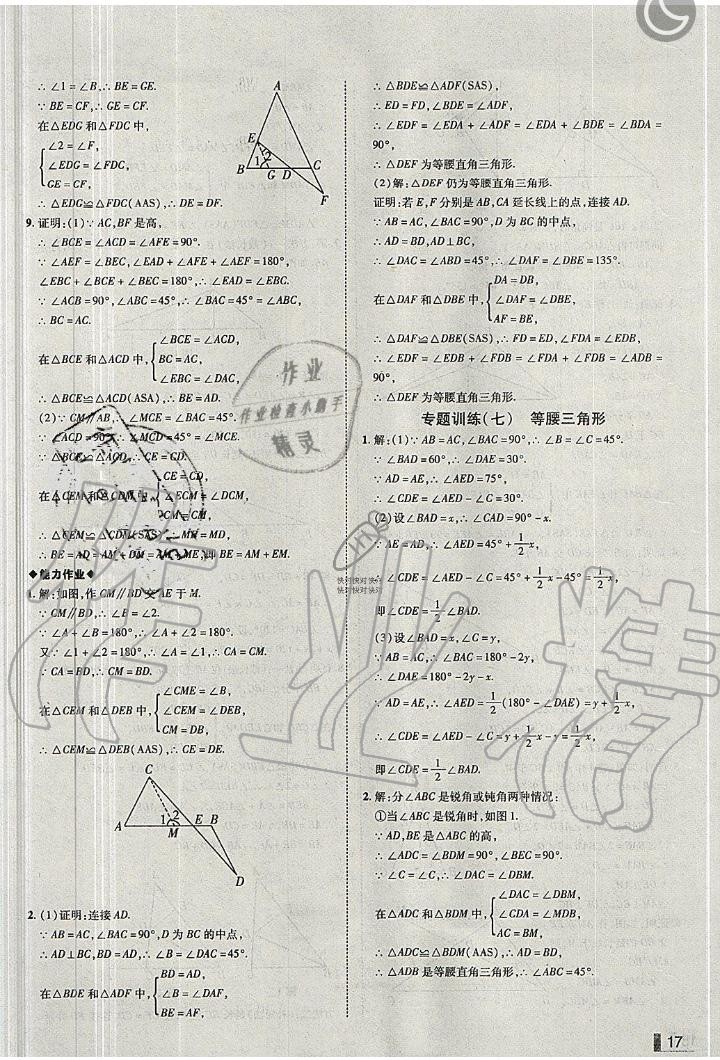 ∴ ∠1=∠B,∴ BE=GE.
∵ BE=CF,∴ GE=CF.
在△EDG 和△FDC 中,
∠2=∠F,
∠EDG=∠FDC,
GE=CF,
∴ △EDG≌△FDC(AAS),∴ DE=DF.
A
E
1
2
B
G
D
C
F
9. 证明:(1)∵ AC,BF 是高,
∴ ∠BCE=∠ACD=∠AFE=90°.
∵ ∠AEF=∠BEC,∠EAD+∠AFE+∠AEF=180°,
∠EBC+∠BCE+∠BEC=180°,∴ ∠EAD=∠EBC.
∵ ∠ACB=90°,∠ABC=45°,∴ ∠BAC=45°=∠ABC,
∴ BC=AC.
在△BCE 和△ACD 中,
∠BCE=∠ACD,
BC=AC,
∠EBC=∠DAC,
∴ △BCE≌△ACD(ASA),∴ BE=AD.
(2)∵ CM∥AB,∴ ∠MCE=∠BAC=45°.
∵ ∠ACD=90°,∴ ∠MCD=45°=∠MCE.
∵ △BCE≌△ACD,∴ CE=CD.
在△CEM 和△CDM 中,
CE=CD,
∠ECM=∠DCM,
CM=CM,
∴ △CEM≌△CDM(SAS),∴ ME=MD,
∴ BE=AD=AM+DM=AM+ME,即 BE=AM+EM.
◆能力作业◆
1. 解:如图,作 CM∥BD 交 AE 于 M.
∵ CM∥DB,∴ ∠B=∠2.
∵ ∠A+∠B=180°,∴ ∠A+∠2=180°.
又∵ ∠1+∠2=180°,∴ ∠A=∠1,∴ CA=CM.
∵ CA=BD,∴ CM=BD.
在△CEM 和△DEB 中,
∠CME=∠B,
∠CEM=∠DEB,
CM=DB,
∴ △CEM≌△DEB(AAS),∴ CE=DE.
C
1
2
A
M
E
B
D
2. (1)证明:连接 AD.
∵ AB=AC,∠BAC=90°,D 为 BC 的中点,
∴ AD⊥BC,BD=AD,∴ ∠B=∠DAC=45°.
在△BDE 和△ADF 中,
BD=AD,
∠B=∠DAF,
BE=AF,
∴ △BDE≌△ADF(SAS),
∴ ED=FD,∠BDE=∠ADF,
∴ ∠EDF=∠EDA+∠ADF=∠EDA+∠BDE=∠BDA=
90°,
∴ △DEF 为等腰直角三角形.
(2)解:△DEF 仍为等腰直角三角形.
证明:若 E,F 分别是 AB,CA 延长线上的点,连接 AD.
∵ AB=AC,∠BAC=90°,D 为 BC 的中点,
∴ AD=BD,AD⊥BC,
∴ ∠DAC=∠ABD=45°,∴ ∠DAF=∠DBE=135°.
在△DAF 和△DBE 中,
DA=DB,
∠DAF=∠DBE,
AF=BE,
∴ △DAF≌△DBE(SAS),∴ FD=ED,∠FDA=∠EDB,
∴ ∠EDF=∠EDB+∠FDB=∠FDA+∠FDB=∠ADB=
90°,
∴ △DEF 为等腰直角三角形.
专题训练(七) 等腰三角形
1. 解:(1)∵ AB=AC,∠BAC=90°,∴ ∠B=∠C=45°.
∵ ∠BAD=60°,∴ ∠DAE=30°.
∵ AD=AE,∴ ∠AED=75°,
∴ ∠CDE=∠AED-∠C=30°.
(2)设∠BAD=x,∴ ∠CAD=90°-x.
∵ AE=AD,∴ ∠AED=45°+1/2x,
∴ ∠CDE=∠AED-∠C=45°+1/2x-45°=1/2x,
即∠CDE=1/2∠BAD.
(3)设∠BAD=x,∠C=y,
∵ AB=AC,∴ ∠BAC=180°-2y,
∵ AD=AE,∴ ∠AED=1/2(180°-∠DAE)=y+1/2x,
∴ ∠CDE=∠AED-∠C=y+1/2x-y=1/2x,
即∠CDE=1/2∠BAD.
2. 解:分∠ABC 是锐角或钝角两种情况:
①当∠ABC 是锐角时,如图 1.
∵ AD,BE 是△ABC 的高,
∴ ∠ADC=∠BDM=90°,∠BEC=90°,
∵ ∠C=∠C,∴ ∠DAC=∠DBM.
在△ADC 和△BDM 中,
∠DAC=∠DBM,
∠CDA=∠MDB,
AC=BM,
∴ △ADC≌△BDM(AAS),∴ AD=BD,
∴ △ADB 是等腰直角三角形,
作业
作业检查小助手
精灵
快对快对快对
快对快对快对
作业精
17